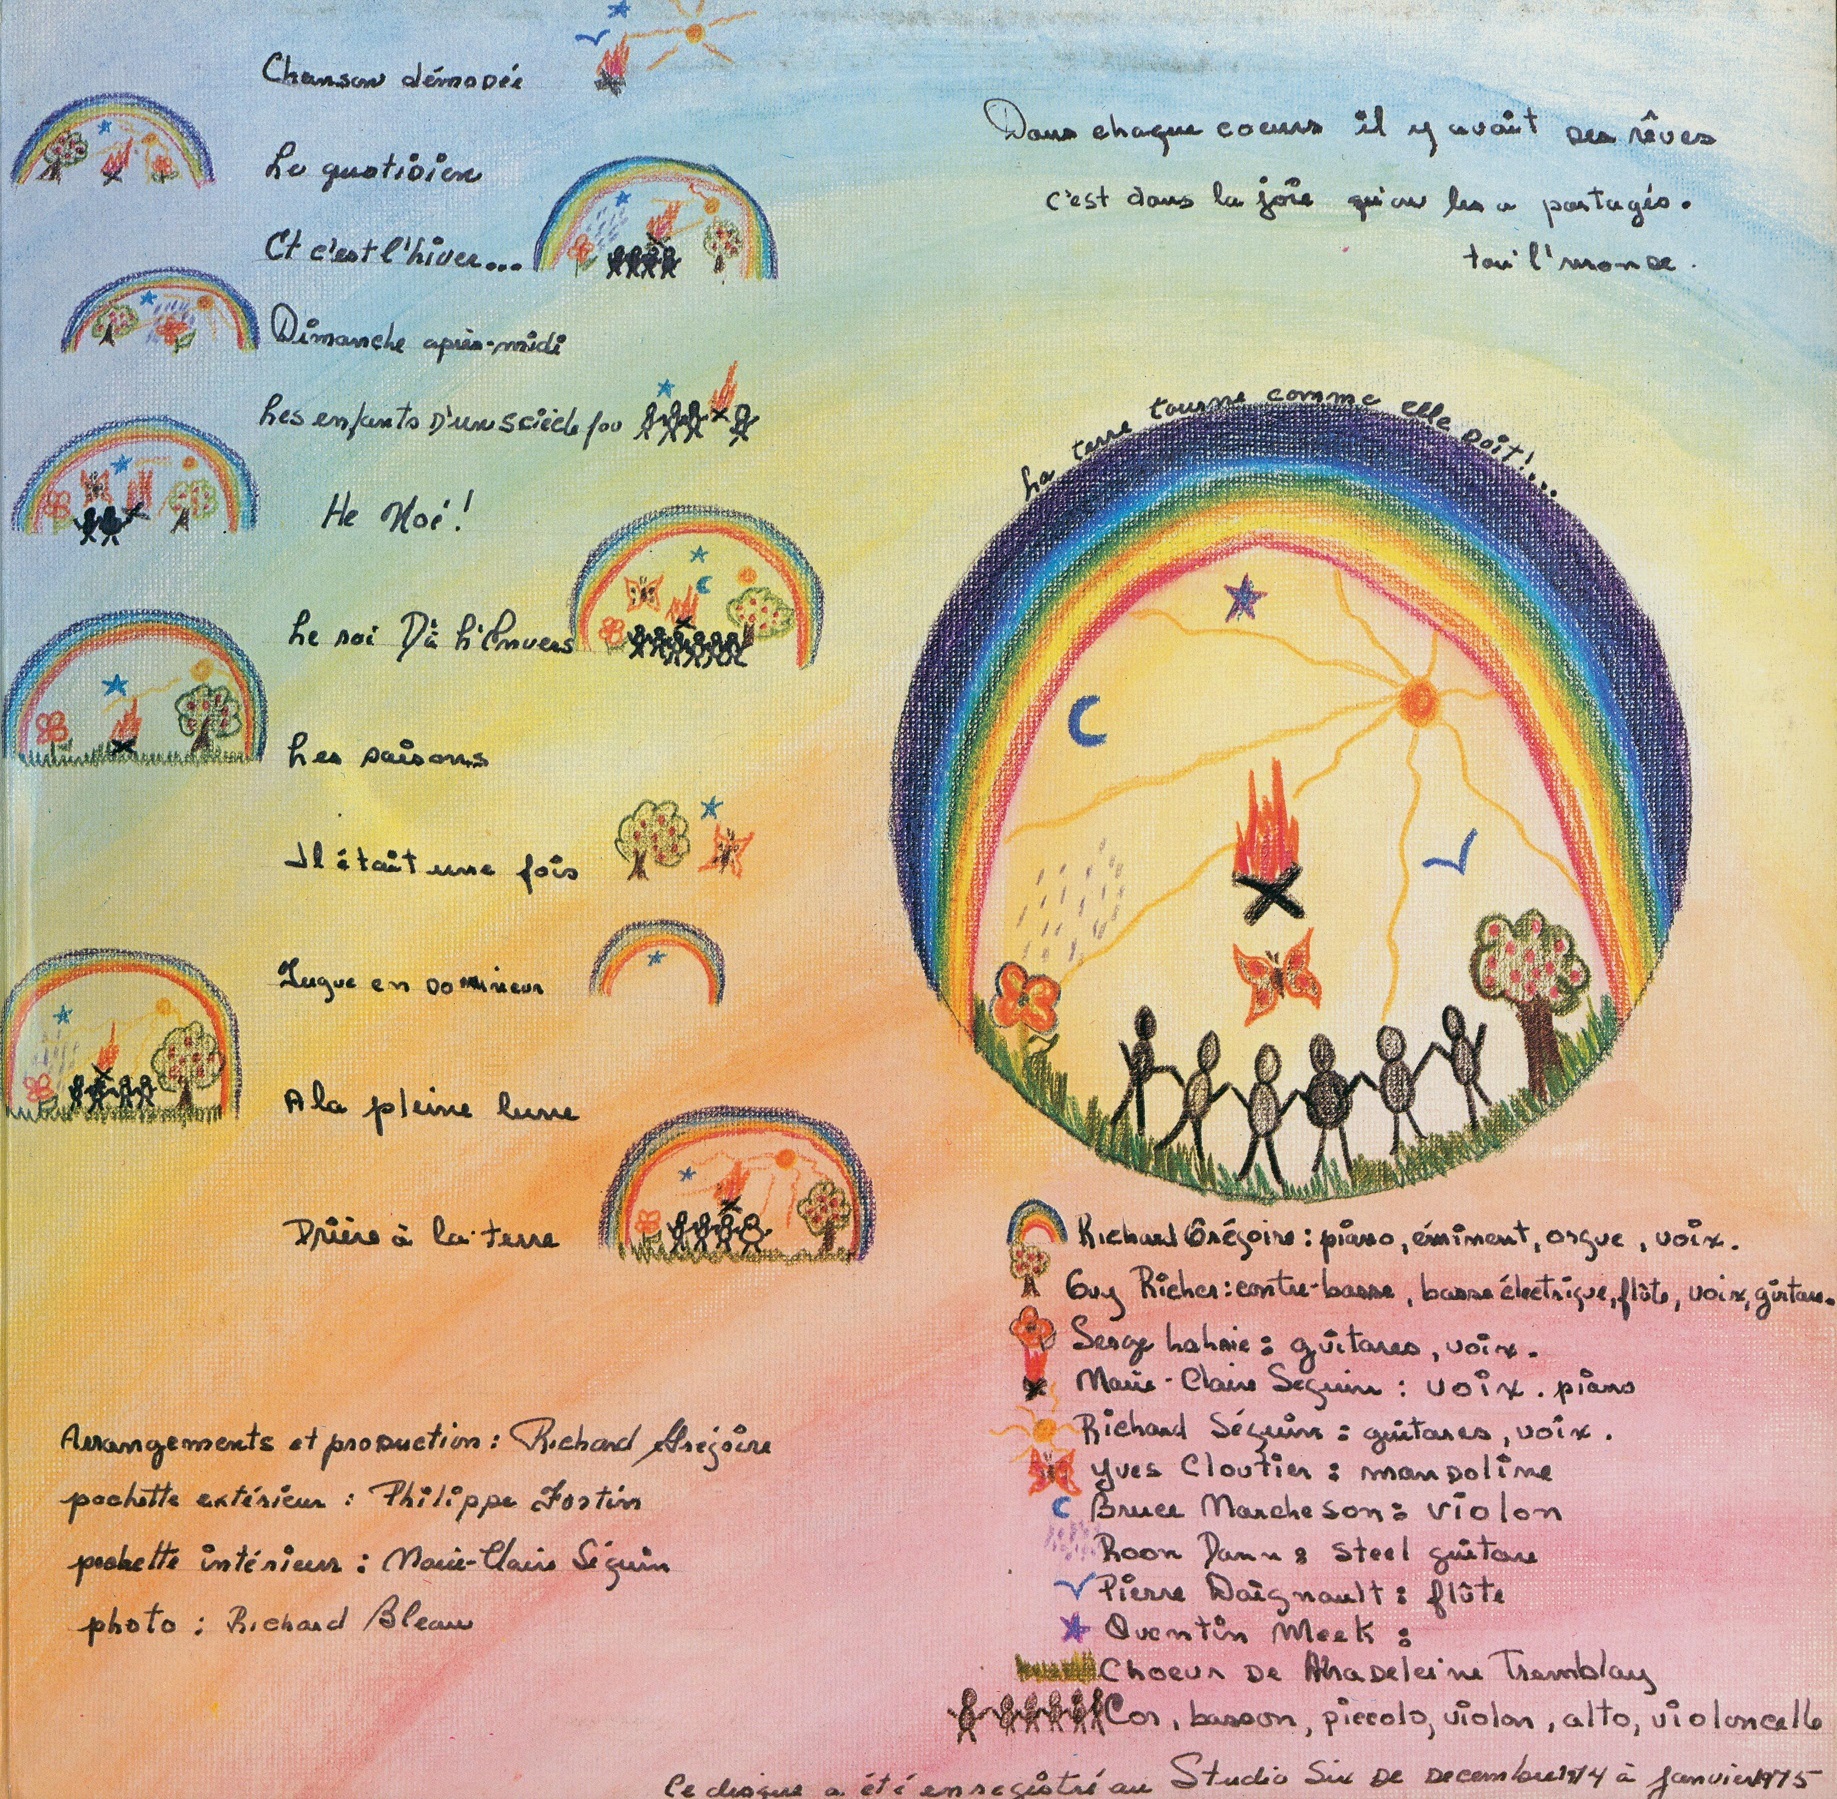 Chanson démodée
Le quotidien
Et c'est l'hiver...
Dimanche après-midi
Les enfants d'un siècle fou
He Noé!
Le roi D'à L'Envers
Les saisons
Il était une fois
Fugue en do mineur
A la pleine lune
Prière à la terre
Arrangements et production : Richard Grégoire
pochette extérieur : Philippe Fortin
pochette intérieur : Marie-Claire Séguin
photo : Richard Bleau
Dans chaque coeurs il y avait des rêves
c'est dans la joie qu'on les a partagés.
tou' l'monde.
La terre tourne comme elle doit!...
Richard Grégoire : piano, éminent, orgue, voix.
Guy Richer : contre-basse, basse électrique, flûte, voix, guitare.
Serge Lahaie : guitares, voix.
Marie-Claire Séguin : voix. piano
Richard Séguin : guitares, voix.
Yves Cloutier : mandoline
Bruce Marcheson : violon
Roon Dann : steel guitare
Pierre Daignault : flûte
Quentin Meek :
Choeur de Madeleine Tremblay
Cor, basson, piccolo, violon, alto, violoncelle
Ce disque a été enregistré au Studio Six de decembre 1974 à janvier 1975